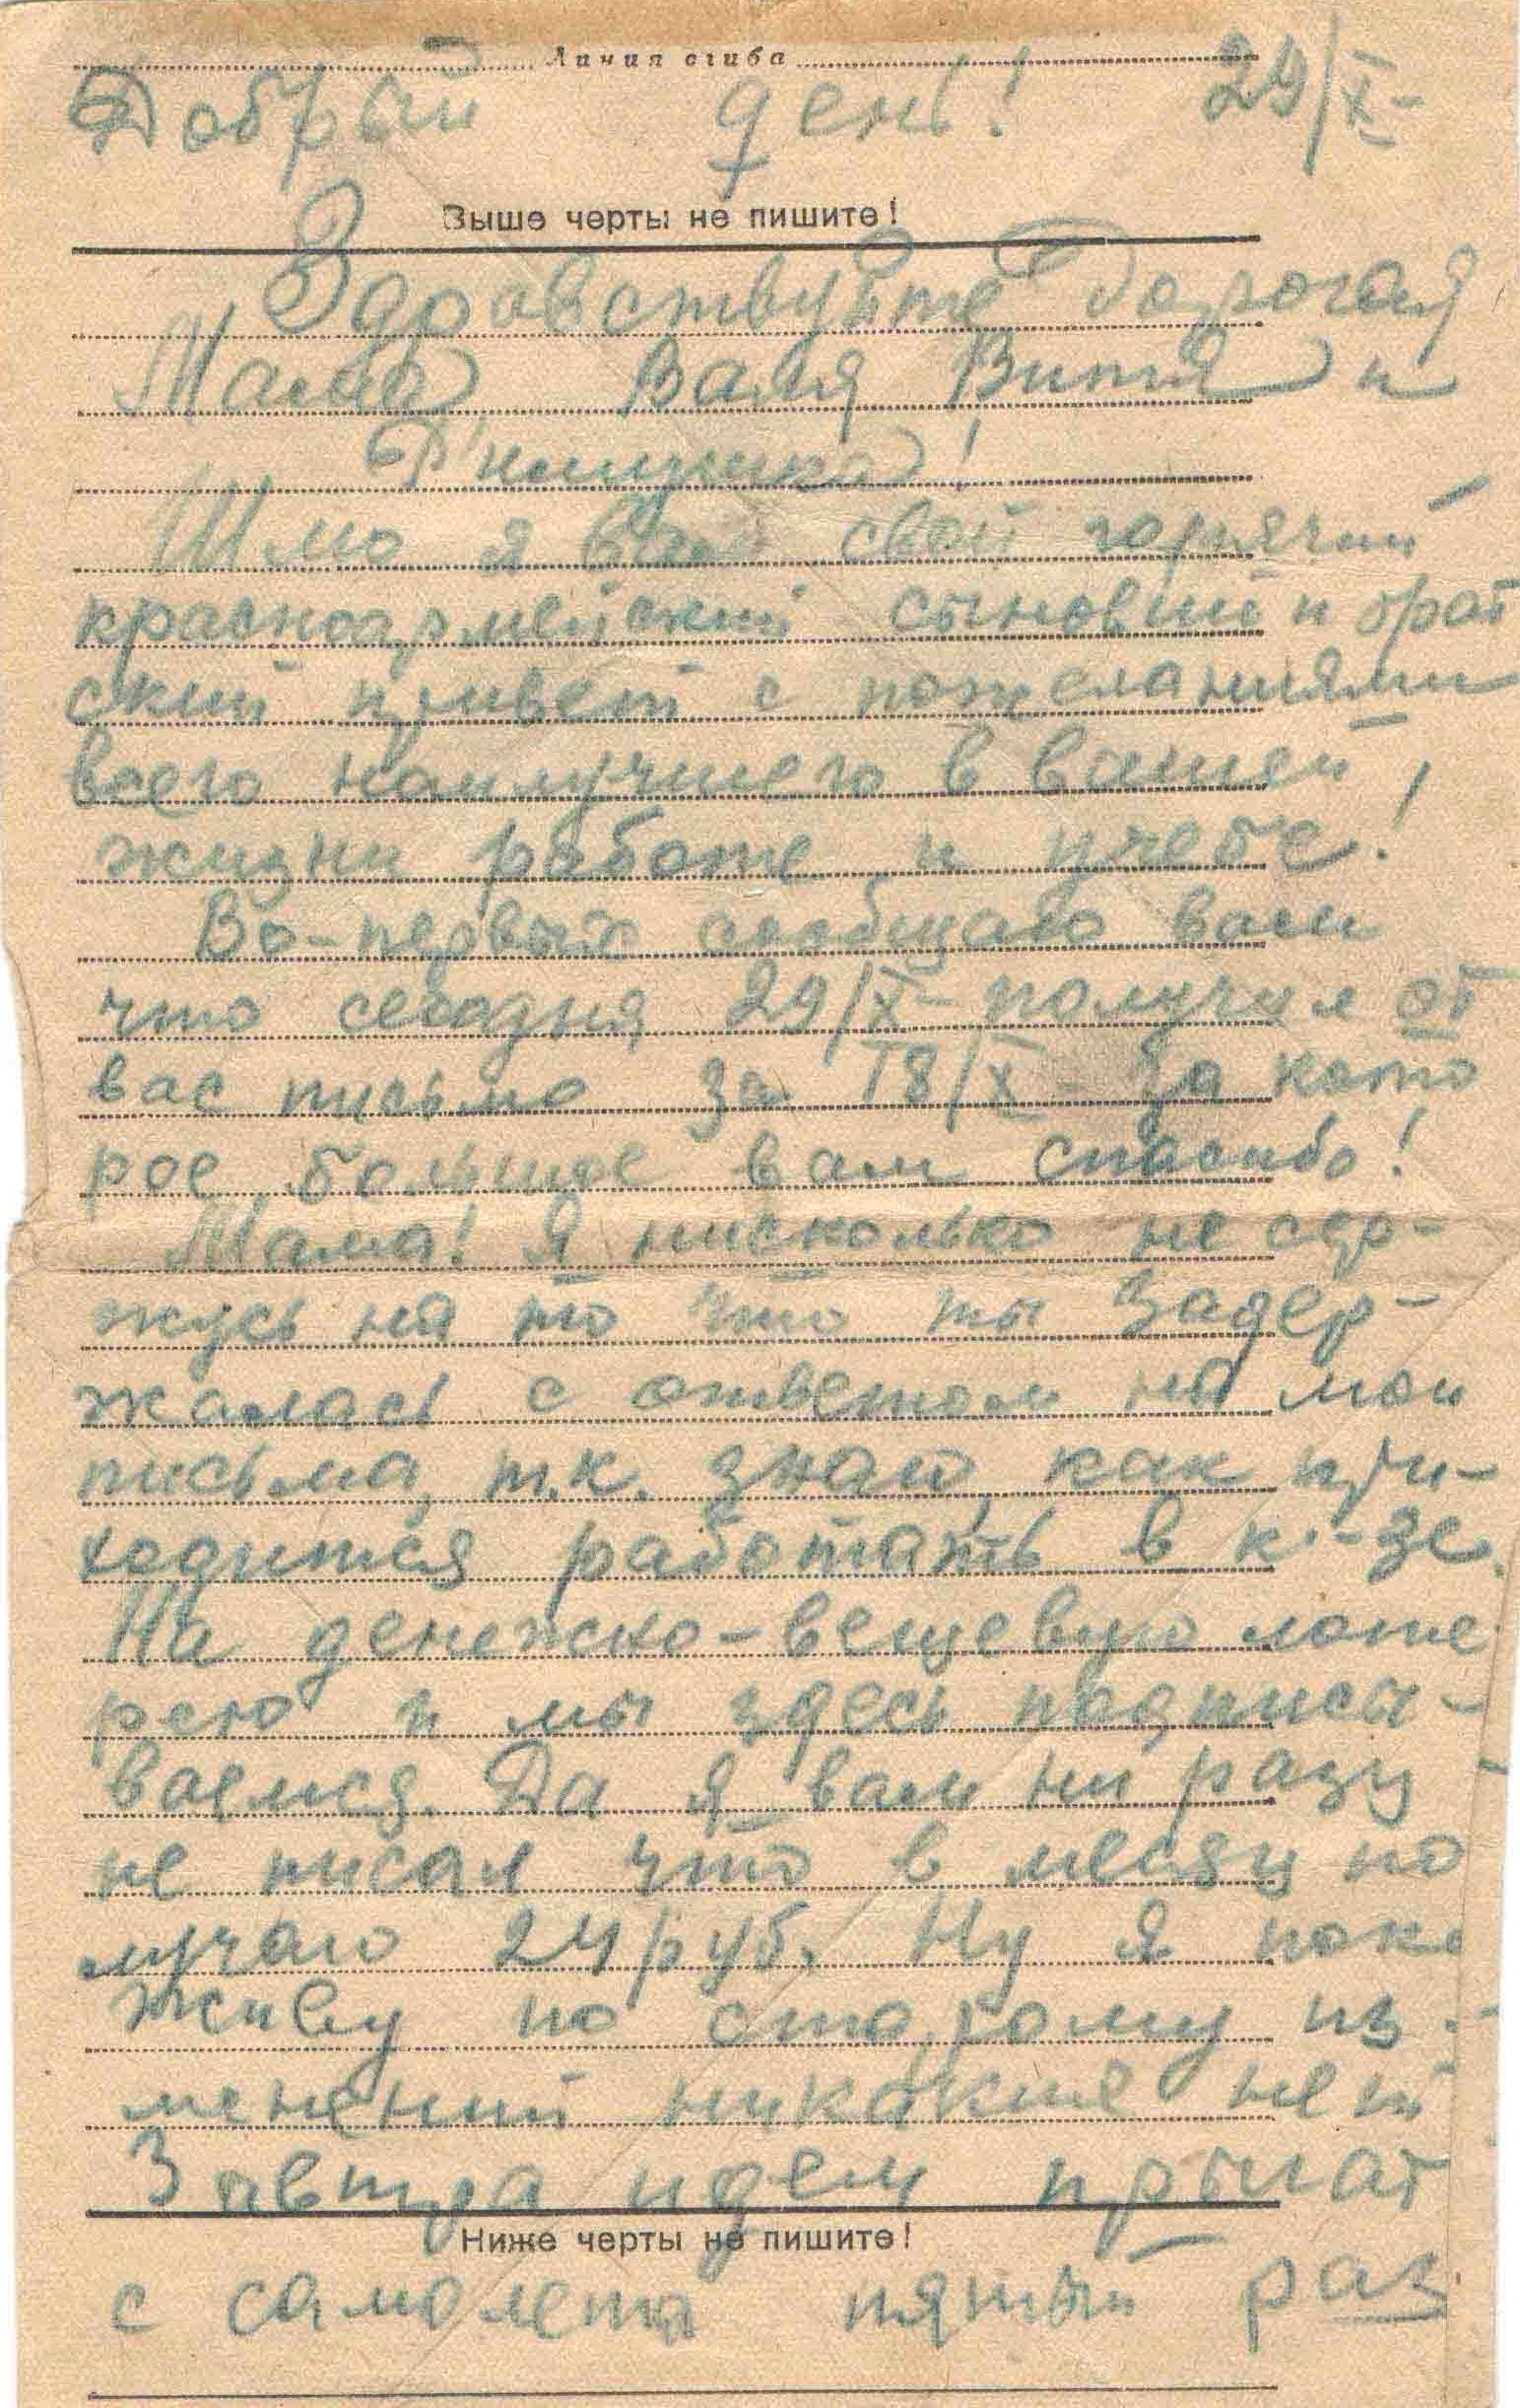 Линия сгиба
Добрый день! 29/X-
Выше черты не пишите!
Здравствуйте Дорогая
Мама Валя Витя и
Шлю я вам свой горячий
красноармейский сыновий и брат
ский привет с пожеланиями
всего наилучшего в вашей
жизни работе и учебе!
Во-первых сообщаю вам
что сегодня 29/X- получил от
вас письмо за 18/X- за кото
рое большое вам спасибо!
Мама! Я нисколько не сер-
жусь на то что ты задер-
жалась с ответом на мои
письма, т.к. знаю, как при-
ходится работать в к-зе.
На денежно-вещевую лоте
рею и мы здесь подписы-
ваемся. Да я вам ни разу
не писал что в месяц по
лучаю 24 руб. Ну я пока
живу по старому из-
менений никаких нет
Завтра идем прыгат
Ниже черты не пишите!
с самолета пятый раз